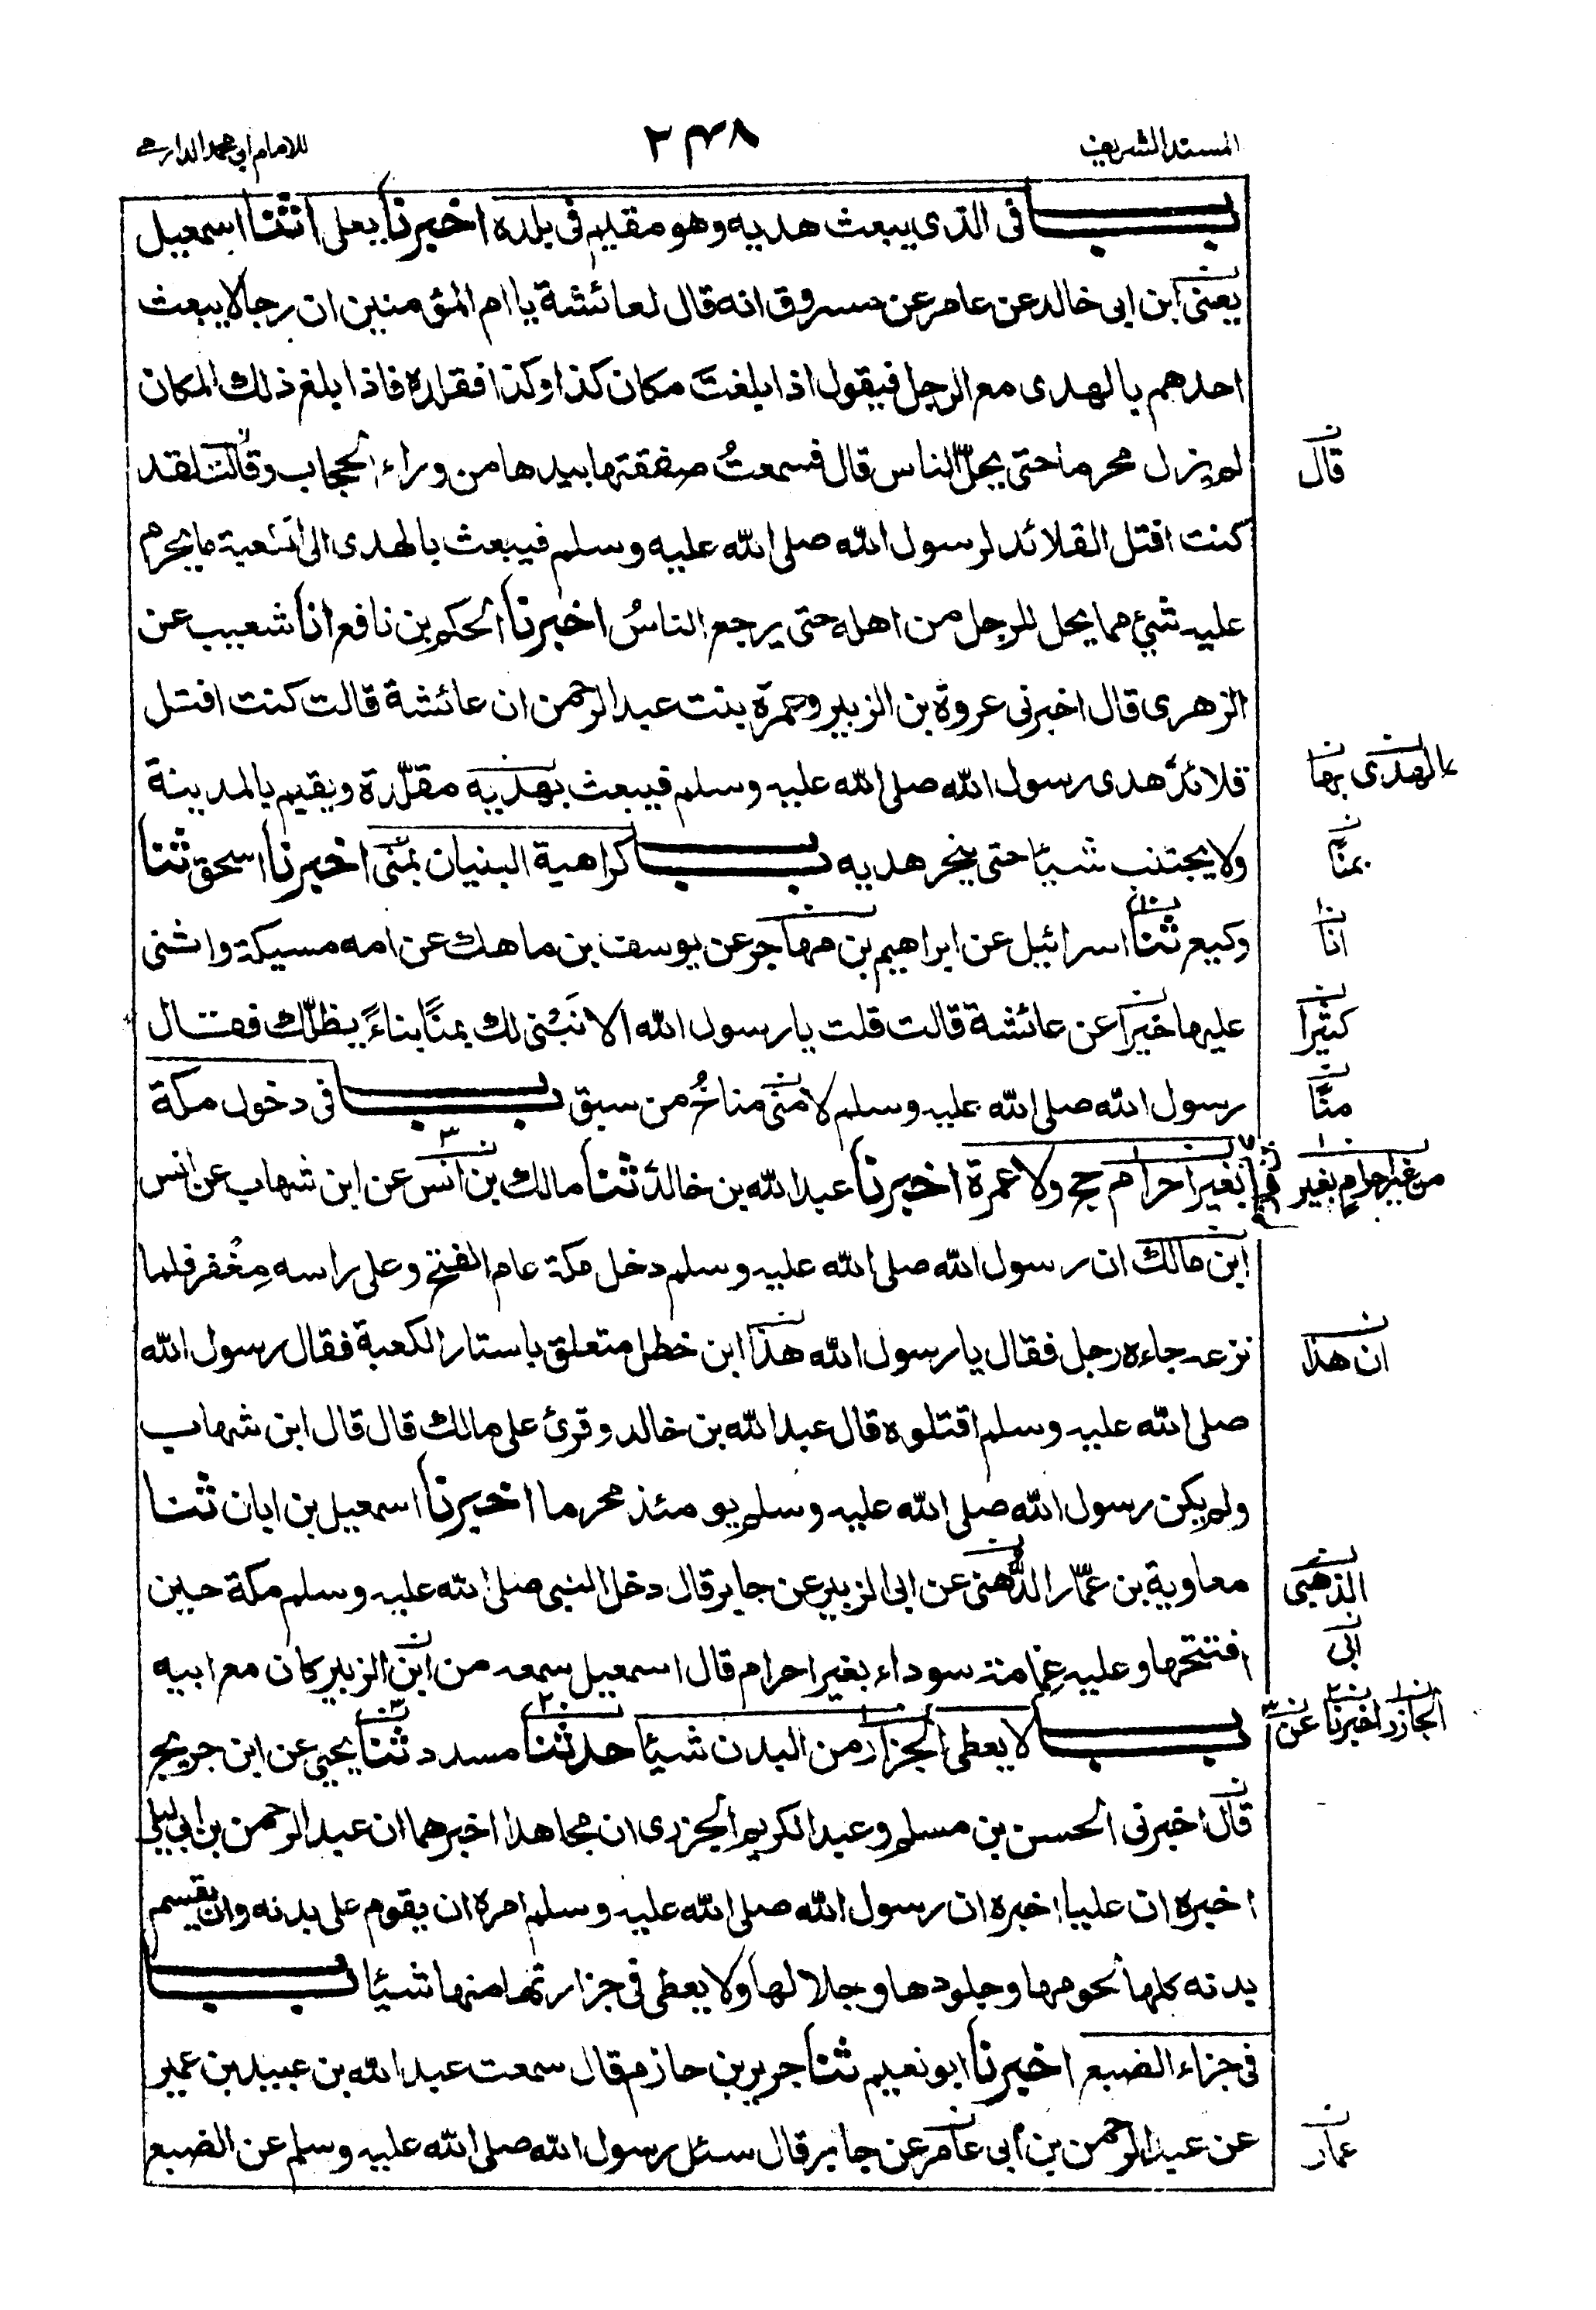 المسند الشريف ٢٤٨ للامام ابي محمد الدارمي
باب في الذي يبعث هديه وهو مقيم في بلده اخبرنا يعلى انثنا اسمعيل
يعنى ابن ابى خالد عن عامر عن مسروق انه قال لعائشة يا ام المؤمنين ان رجالا يبعث
احدهم بالهدى مع الرجل فيقول اذا بلغتَ مكان كذا وكذا فقلده فاذا بلغ ذلك المكان
لم يزل محرما حتى يحلّ الناس قال فسمعتُ صفقتها بيدها من وراء الحجاب وقالت لقد
قال
كنت افتل القلائد لرسول الله صلى الله عليه وسلم فيبعث بالهدى الى الكعبة ما يحرم
عليه شئ مما يحل للرجل من اهله حتى يرجع الناسُ اخبرنا الحكم بن نافع انا شعيب عن
الزهرى قال اخبرنى عروة بن الزبير وعمرة بنت عبد الرحمن ان عائشة قالت كنت افتل
قلائد هدى رسول الله صلى الله عليه وسلم فيبعث بهديه مقلّدة ويقيم بالمدينة
بالهدى بها
ولا يجتنب شيئا حتى ينحر هديه باب كراهية البنيان بمنى اخبرنا اسحق ثنا
بمنًا
وكيع ثنا اسرائيل عن ابراهيم بن مهاجر عن يوسف بن ماهك عن امه مسيكة واثنى
انا
عليها خيرا عن عائشة قالت قلت يا رسول الله الا نَبْنى لك بمنًا بناءً يظلّك فقال
كثيرا
رسول الله صلى الله عليه وسلم لا منى مناخُ من سبق باب فى دخول مكة
منًا
بغير احرام حج ولا عمرة اخبرنا عبد الله بن خالد ثنا مالك بن انس عن ابن شهاب عن انس
من غير احرام بغير
ابن مالك ان رسول الله صلى الله عليه وسلم دخل مكة عام الفتح وعلى راسه مِغْفر فلما
نزعه جاءه رجل فقال يا رسول الله هذا ابن خطل متعلق باستار الكعبة فقال رسول الله
ان هذا
صلى الله عليه وسلم اقتلوه قال عبد الله بن خالد وقرئ على مالك قال قال ابن شهاب
ولم يكن رسول الله صلى الله عليه وسلم يومئذ محرما اخبرنا اسمعيل بن ابان ثنا
معاوية بن عمّار الدُّهنى عن ابى الزبير عن جابر قال دخل النبى صلى الله عليه وسلم مكة حين
الذهبى
افتتحها وعليه عمامة سوداء بغير احرام قال اسمعيل سمعه من ابن الزبير كان مع ابيه
ابى
باب لا يعطى الجزار من البدن شيئا حدثنا مسدد ثنا يحيى عن ابن جريج
الجازر اخبرنا عن
قال اخبرنى الحسن بن مسلم وعبد الكريم الجزرى ان مجاهدا اخبرهما ان عبد الرحمن بن ابى ليلى
اخبره ان عليا اخبره ان رسول الله صلى الله عليه وسلم امره ان يقوم على بدنه وان يقسم
بدنه كلها لحومها وجلودها وجلالها ولا يعطى فى جزارتها منها شيئا باب
فى جزاء الضبع اخبرنا ابو نعيم ثنا جرير بن حازم قال سمعت عبد الله بن عبيد بن عمير
عن عبد الرحمن بن ابى عامر عن جابر قال سئل رسول الله صلى الله عليه وسلم عن الضبع
عمار